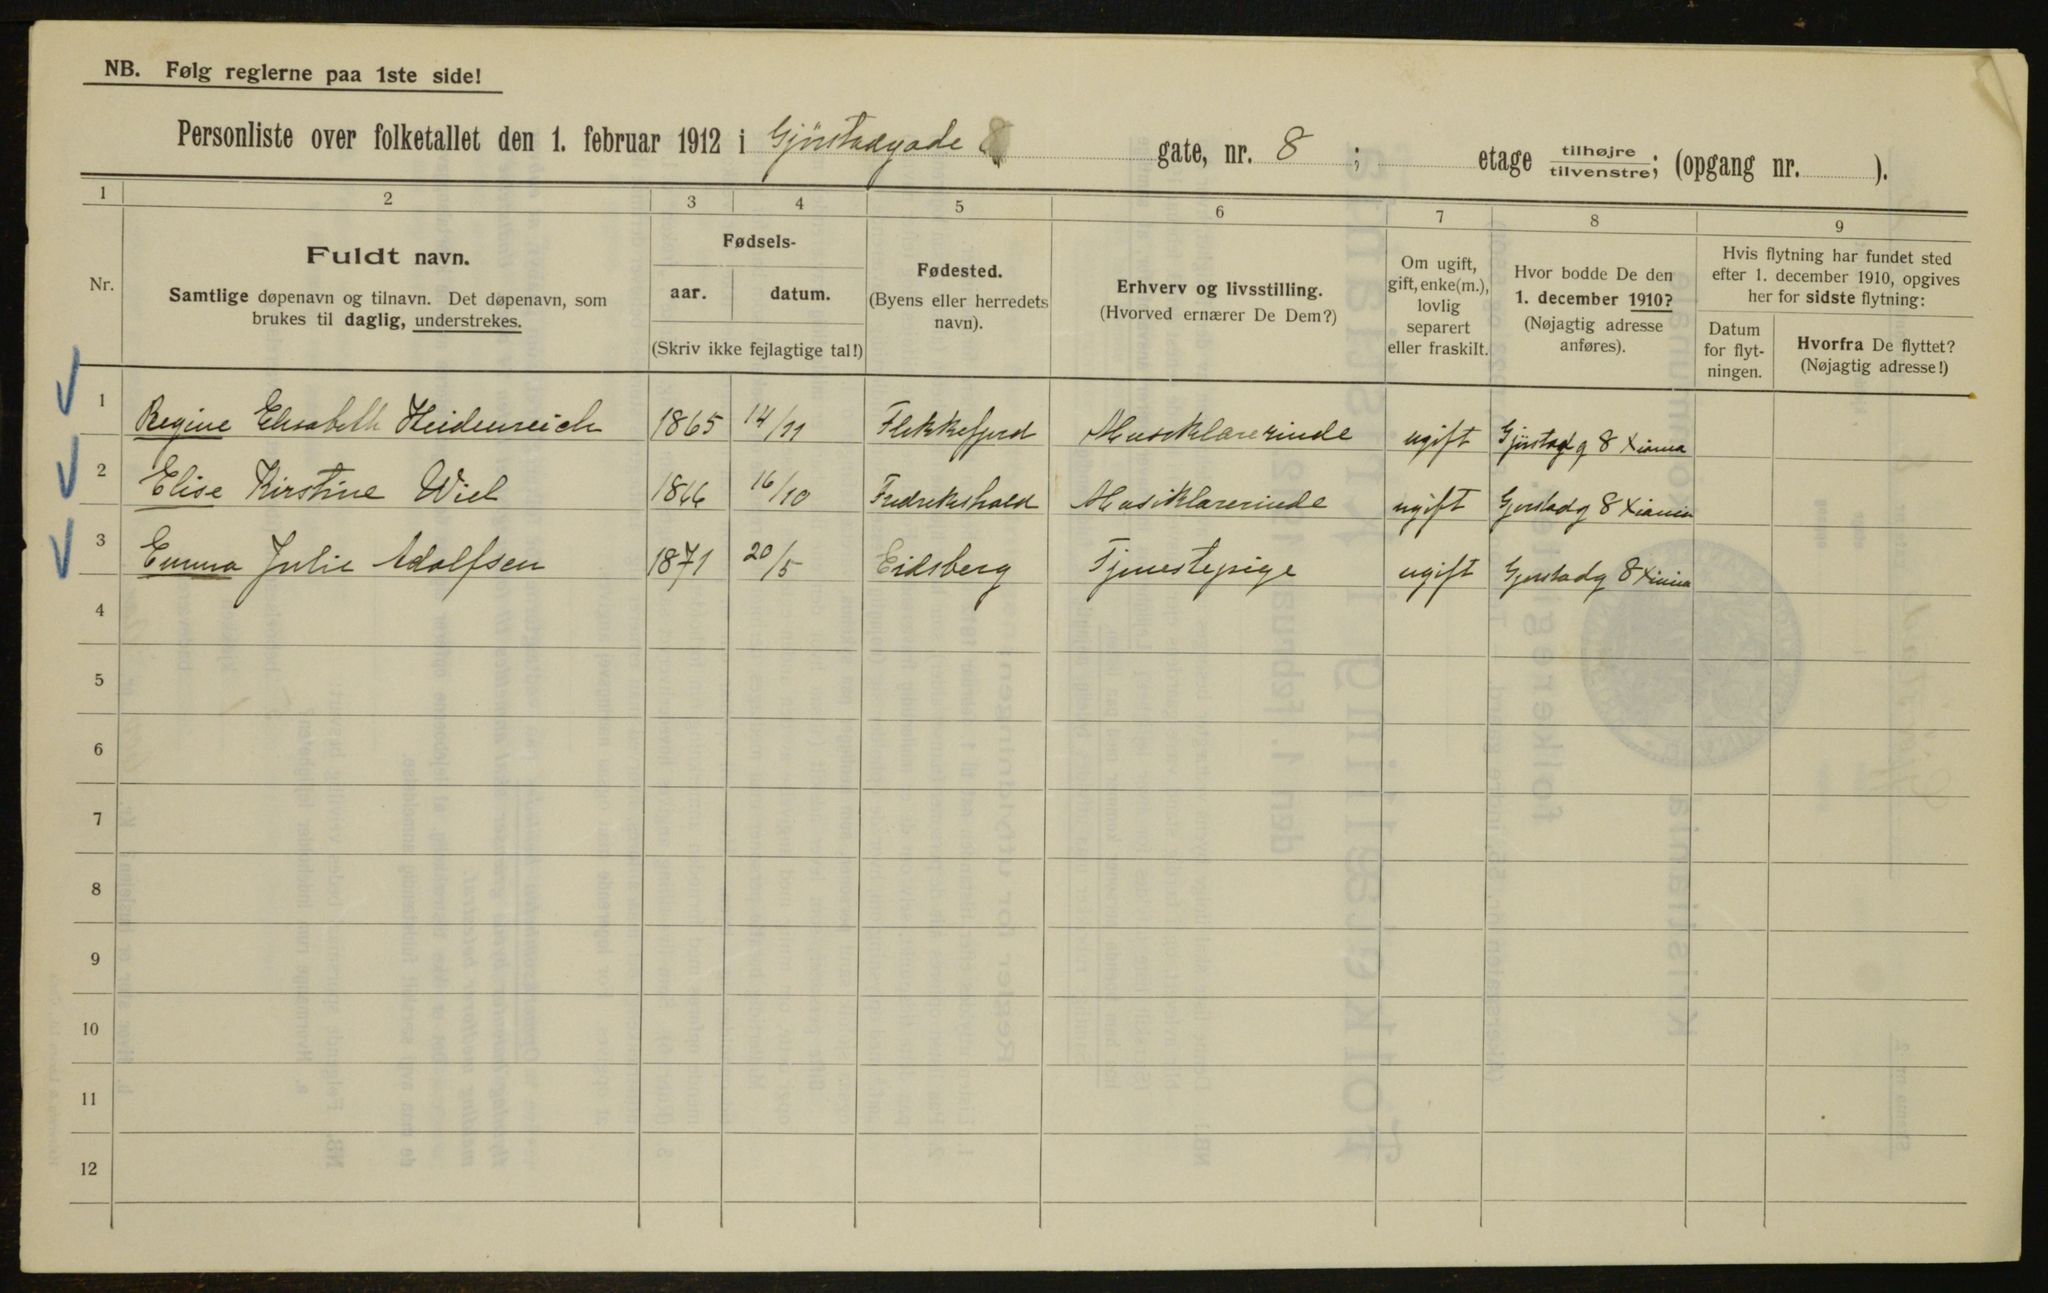 NB. Følg reglerne paa 1ste side!
Personliste over folketallet den 1. februar 1912 i Gjörstadgade gate, nr. 8 ; etage tilhøjre tilvenstre; (opgang nr. ).
1 2 3 4 5 6 7 8 9
Nr.
Fuldt navn.
Samtlige døpenavn og tilnavn. Det døpenavn, som
brukes til daglig, understrekes.
Fødsels-
aar. datum.
(Skriv ikke fejlagtige tal!)
Fødested.
(Byens eller herredets
navn).
Erhverv og livsstilling.
(Hvorved ernærer De Dem?)
Om ugift,
gift, enke(m.),
lovlig
separert
eller fraskilt.
Hvor bodde De den
1. december 1910?
(Nøjagtig adresse
anføres).
Hvis flytning har fundet sted
efter 1. december 1910, opgives
her for sidste flytning:
Datum
for flyt-
ningen.
Hvorfra De flyttet?
(Nøjagtig adresse!)
1 Regine Elisabeth Heidenreich 1865 14/11 Flekkefjord Musiklærerinde ugift Gjörstadg 8 Xiania
2 Elise Kirstine Wiel 1866 16/10 Fredrikshald Musiklærerinde ugift Gjörstadg 8 Xiania
3 Emma Julie Adolfsen 1871 20/5 Eidsberg Tjenestepige ugift Gjörstadg 8 Xiania
4
5
6
7
8
9
10
11
12